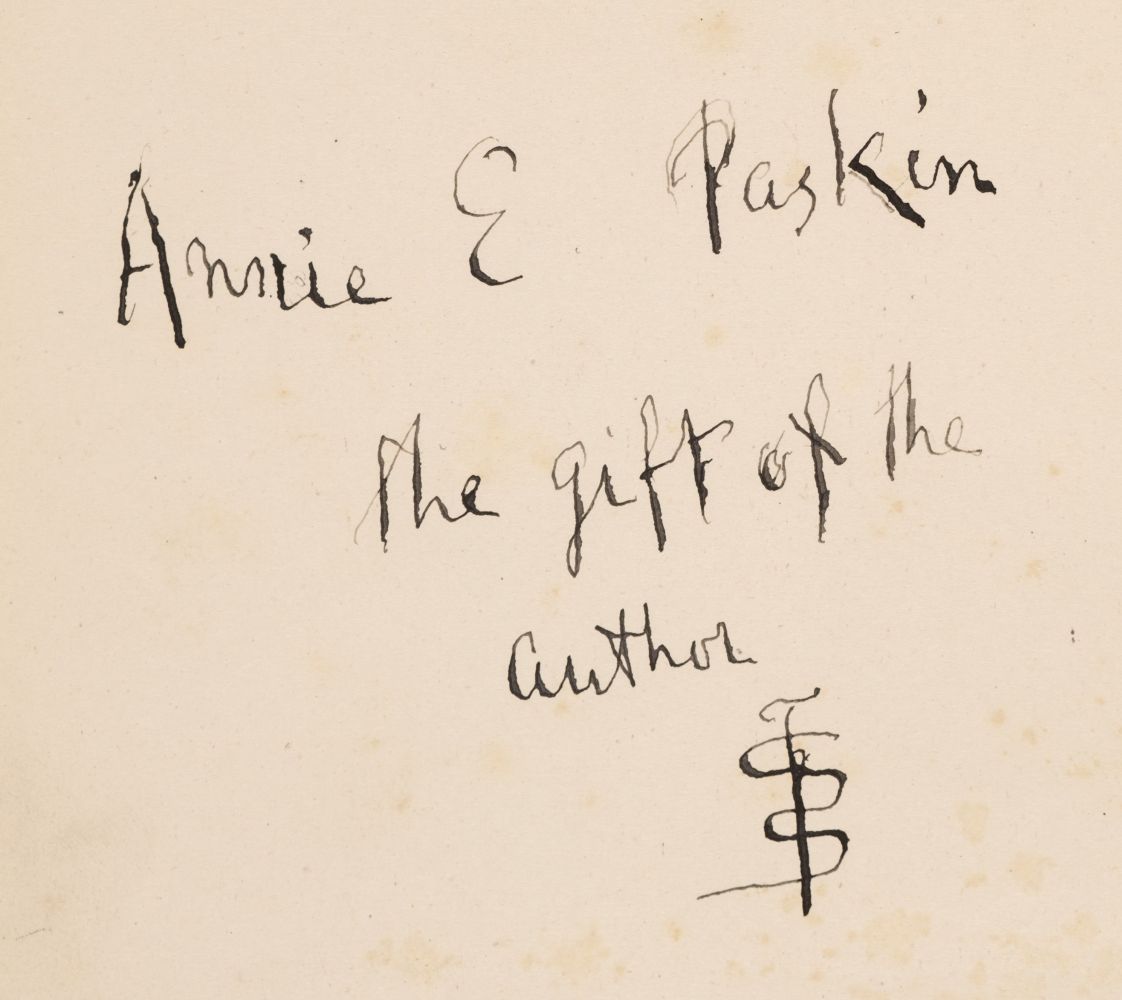 Annie E Paskin
the gift of the
author